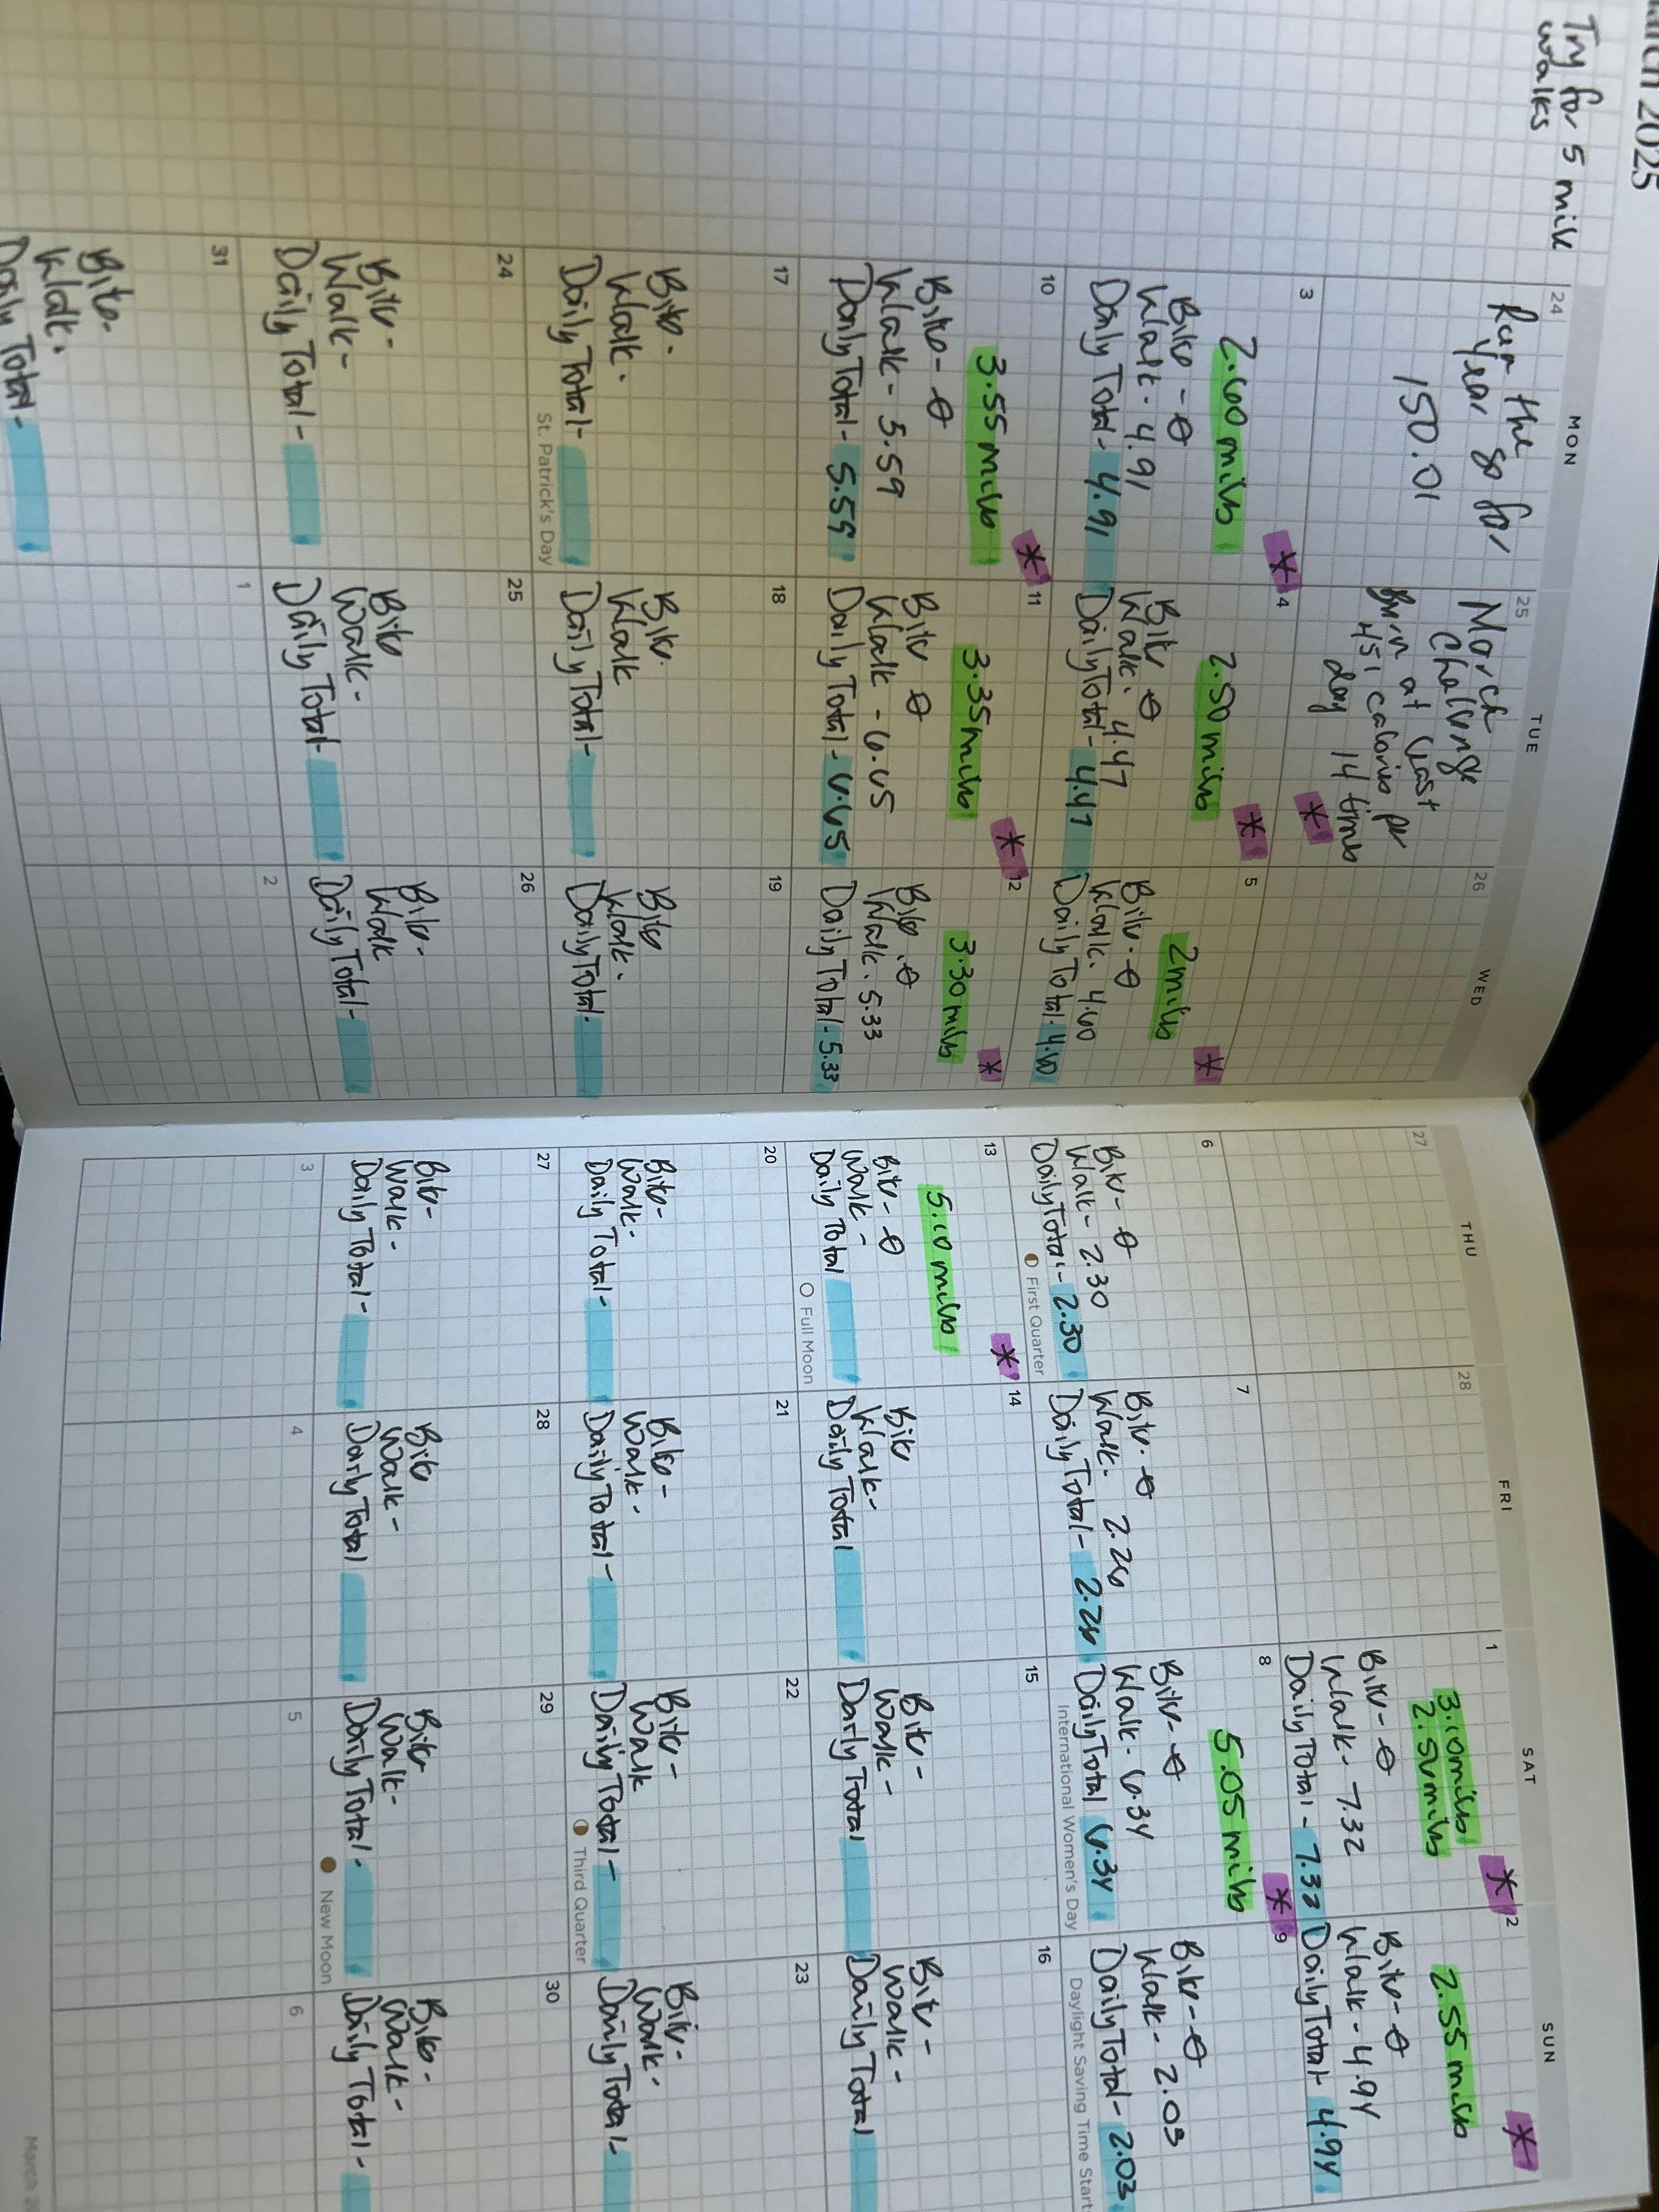 March 2025
Try for 5 mile
walks
MON
TUE
WED
THU
FRI
SAT
SUN
24
Run the
Year so far
150.01
25
March
Challenge
Burn at least
451 calories per
day 14 times
*
26
27
28
1
*
3.10 miles
2.50 miles
Bike - 0
Walk - 7.32
Daily Total - 7.32
2
*
2.55 miles
Bike - 0
Walk - 4.94
Daily Total - 4.94
3
*
2.60 miles
Bike - 0
Walk - 4.91
Daily Total - 4.91
4
*
2.50 miles
Bike 0
Walk - 4.47
Daily Total - 4.47
5
*
2 miles
Bike - 0
Walk - 4.60
Daily Total - 4.60
6
Bike - 0
Walk - 2.30
Daily Total - 2.30
First Quarter
7
Bike - 0
Walk - 2.26
Daily Total - 2.26
8
Bike - 0
Walk - 6.34
Daily Total 6.34
International Women's Day
9
*
5.05 miles
Bike - 0
Walk - 2.03
Daily Total - 2.03
Daylight Saving Time Start
10
*
3.55 miles
Bike - 0
Walk - 5.59
Daily Total - 5.59
11
*
3.35 miles
Bike 0
Walk - 6.65
Daily Total - 6.65
12
*
3.30 miles
Bike - 0
Walk - 5.33
Daily Total - 5.33
13
*
5.10 miles
Bike - 0
Walk -
Daily Total
Full Moon
14
Bike
Walk -
Daily Total
15
Bike -
Walk -
Daily Total
16
Bike -
Walk -
Daily Total
17
Bike -
Walk -
Daily Total -
St. Patrick's Day
18
Bike -
Walk
Daily Total -
19
Bike
Walk -
Daily Total -
20
Bike -
Walk -
Daily Total -
21
Bike -
Walk -
Daily Total -
22
Bike -
Walk
Daily Total -
Third Quarter
23
Bike -
Walk -
Daily Total -
24
Bike -
Walk -
Daily Total -
25
Bike
Walk -
Daily Total -
26
Bike -
Walk
Daily Total -
27
Bike -
Walk -
Daily Total -
28
Bike
Walk -
Daily Total
29
Bike
Walk -
Daily Total -
New Moon
30
Bike -
Walk -
Daily Total -
31
Bike -
Walk -
Daily Total -
1
2
3
4
5
6